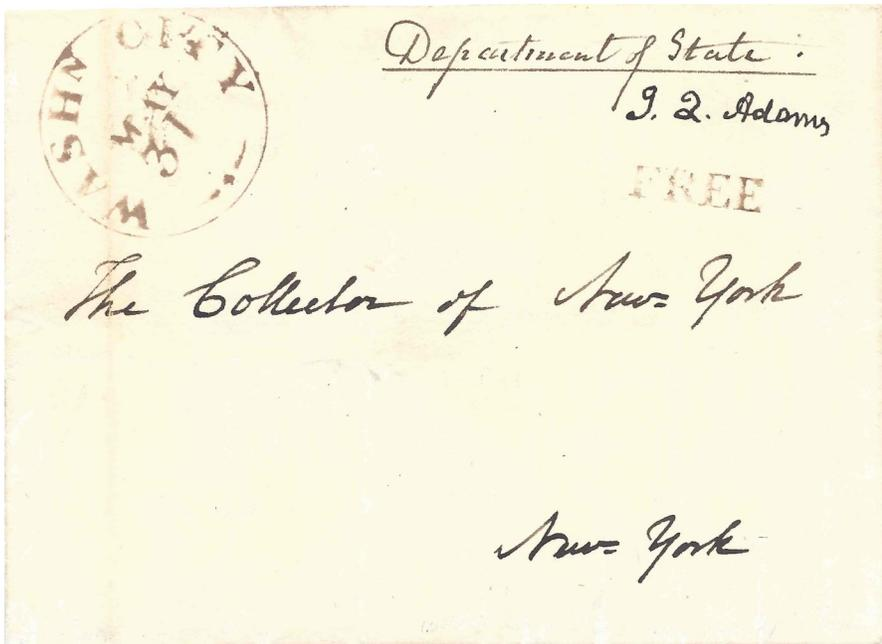 WASHN CITY
MAY
31
Department of State.
J. Q. Adams
FREE
The Collector of New=York
New=York